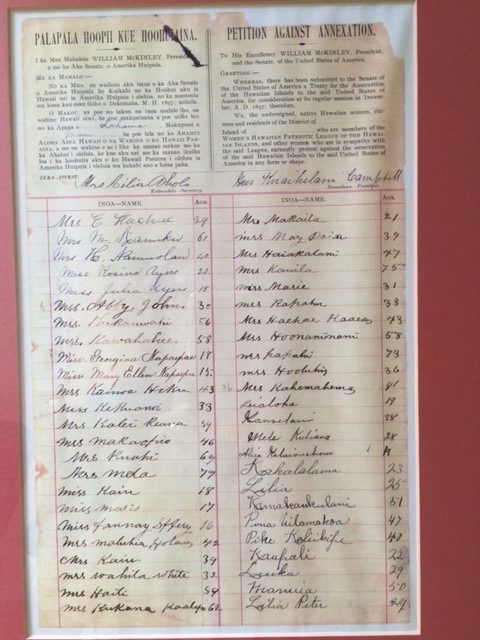 PALAPALA HOOPII KUE HOOHUIAINA.
I ka Mea Mahaloia WILLIAM McKINLEY, Peresidena,
a me ka Aha Senate, o Amerika Huipuia.
ME KA MAHALO:—
NO KA MEA, ua waihoia aku imua o ka Aha Senate
o Amerika Huipuia he Kuikahi no ka Hoohui aku i ko
Hawaii nei ia Amerika Huipuia i oleloia, no ka noonooia
ma kona kau mau iloko o Dekemaba, M. H. 1897; nolaila,
O MAKOU, na poe no lakou na inoa malalo iho, he mau
wahine Hawaii oiwi, he poe makaainana a poe noho hoi
no ka Apana o Lahaina, Mokupuni o
he poe lala no ka AHAHUI
ALOHA AINA HAWAII O NA WAHINE O KO HAWAII PAE-
AINA, a me na wahine e ae i like ka manao makee me ko
ka Ahahui i oleloia, ke kue aku nei me ka manao ikaika
loa i ka hoohuiia aku o ko Hawaii Paeaina i oleloia ia
Amerika Huipuia i oleloia ma kekahi ano a loina paha.
IKEA—ATTEST
Mrs Lilia Aholo
Kakauolelo. Secretary.
PETITION AGAINST ANNEXATION.
To His Excellency WILLIAM McKINLEY, President,
and the Senate, of the United States of America.
GREETING:—
WHEREAS, there has been submitted to the Senate of
the United States of America a Treaty for the Annexation
of the Hawaiian Islands to the said United States of
America, for consideration at its regular session in Decem-
ber, A. D. 1897; therefore,
WE, the undersigned, native Hawaiian women, citi-
zens and residents of the District of
Island of who are members of the
WOMEN'S HAWAIIAN PATRIOTIC LEAGUE OF THE HAWAI-
IAN ISLANDS, and other women who are in sympathy with
the said League, earnestly protest against the annexation
of the said Hawaiian Islands to the said United States of
America in any form or shape.
Mrs Kuaihelani Campbell
Peresidena—President
INOA—NAME. AGE.
Mrs E. 29
Mrs M. 61
Mrs H. 40
Miss Rosina Ayers 20
Miss Julia Ayers 15
Mrs. Abby John 30
Mrs. Kekauwahi 56
Mrs. Kawahahee 58
Miss Georgina Napaepae 18
Miss Mary Ellen Napaepae 15
Mrs Kainoa Heku 43
Miss Kekuanoi 33
Mrs Kalei Keawe 59
Mrs Makaopio 46
Mrs Kuahi 60
Mrs Mela 77
Miss Kaiu 18
Miss Maria 17
Miss Fannay 16
Mrs Maluhia 42
Mrs Kaiu 39
Mrs Wahila White 32
Mrs Haili 54
Mrs Kukona 62
INOA—NAME. AGE.
Mrs Makaila 21
Mrs May 39
Mrs Haiakalani 47
Mrs Kauila 75
Mrs Maria 31
Mrs Kapahu 38
Mrs Haehae 43
Mrs Hoonanionani 58
Mrs Kapahi 73
Mrs Hooluhi 36
36 Mrs Kahemahema 41
Leialoha 19
38
Mele Kuliana 28
Alice 19
Kakalalaua 23
Lilia 25
51
Pena 47
Pike 40
Kaupali 22
Luika 29
50
Lilia Peter